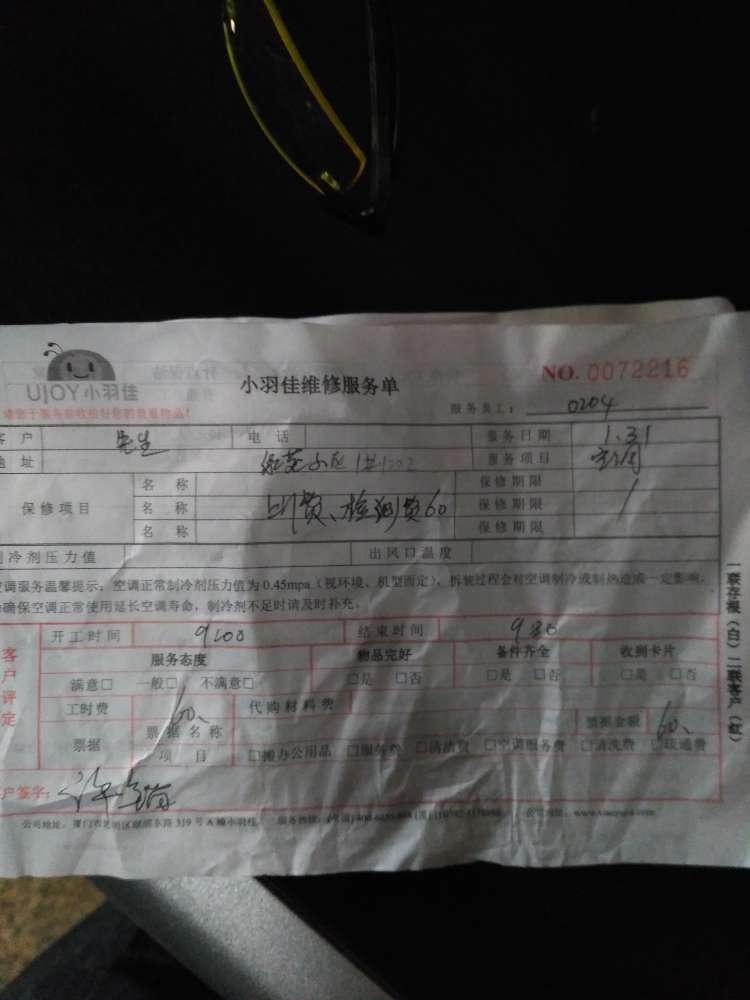 UJOY小羽佳
小羽佳维修服务单
NO. 0072216
服务员工： 0204
客户 先生 电话 服务日期 1.31
地址 小区 服务项目 空调
保修项目 名称 上门费、检测费60 保修期限
名称 保修期限
名称 保修期限
制冷剂压力值 出风口温度
空调服务温馨提示：空调正常制冷剂压力值为 0.45mpa（视环境、机型而定），拆装过程会对空调制冷或制热造成一定影响，
确保空调正常使用延长空调寿命，制冷剂不足时请及时补充。
一联存根（白）二联客户（红）
客户评定
开工时间 9:00 结束时间 9:30
服务态度 物品完好 备件齐全 收到卡片
满意□ 一般□ 不满意□ □是 □否 □是 □否 □是 □否
工时费 60、 代购材料费
票据 票据名称 票据金额 60、
项目 □搬办公用品 □服务费 □清洁费 □空调服务费 □清洗费 □疏通费
客户签字：
公司地址：厦门市 319 号 A 幢小羽佳 服务热线： 公司网址：